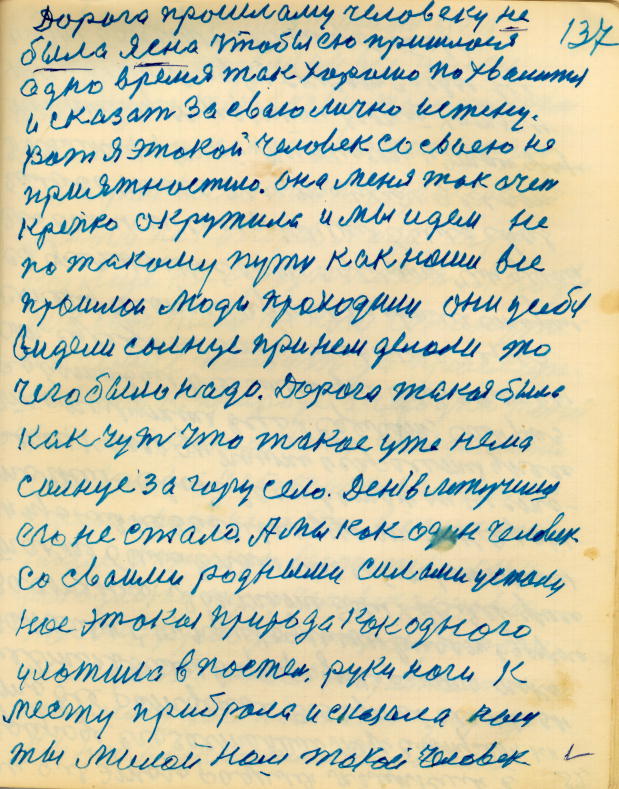 Дорога прошламу человеку не
была ясна чтобы ею пришлося 137
адно время так хорошо похвалится
и сказат за сваю лично истену.
Вот я этакой человек со своею не
приятностию. она меня так очет
крепко окружила и мы идем не
по такому пути как наши все
прошлои люди проходили они у себя
видели солнце при нем делали то
чего было надо. Дорога такая была
как чут что такое уже нема
солнце за гору село. День в лютучими
его не стало. А мы как один человек
со сваими родными силами устали
нас этакая природа как одного
уложила в постел. руки ноги к
месту прибрала и сказала нам
ты милой наш такой человек